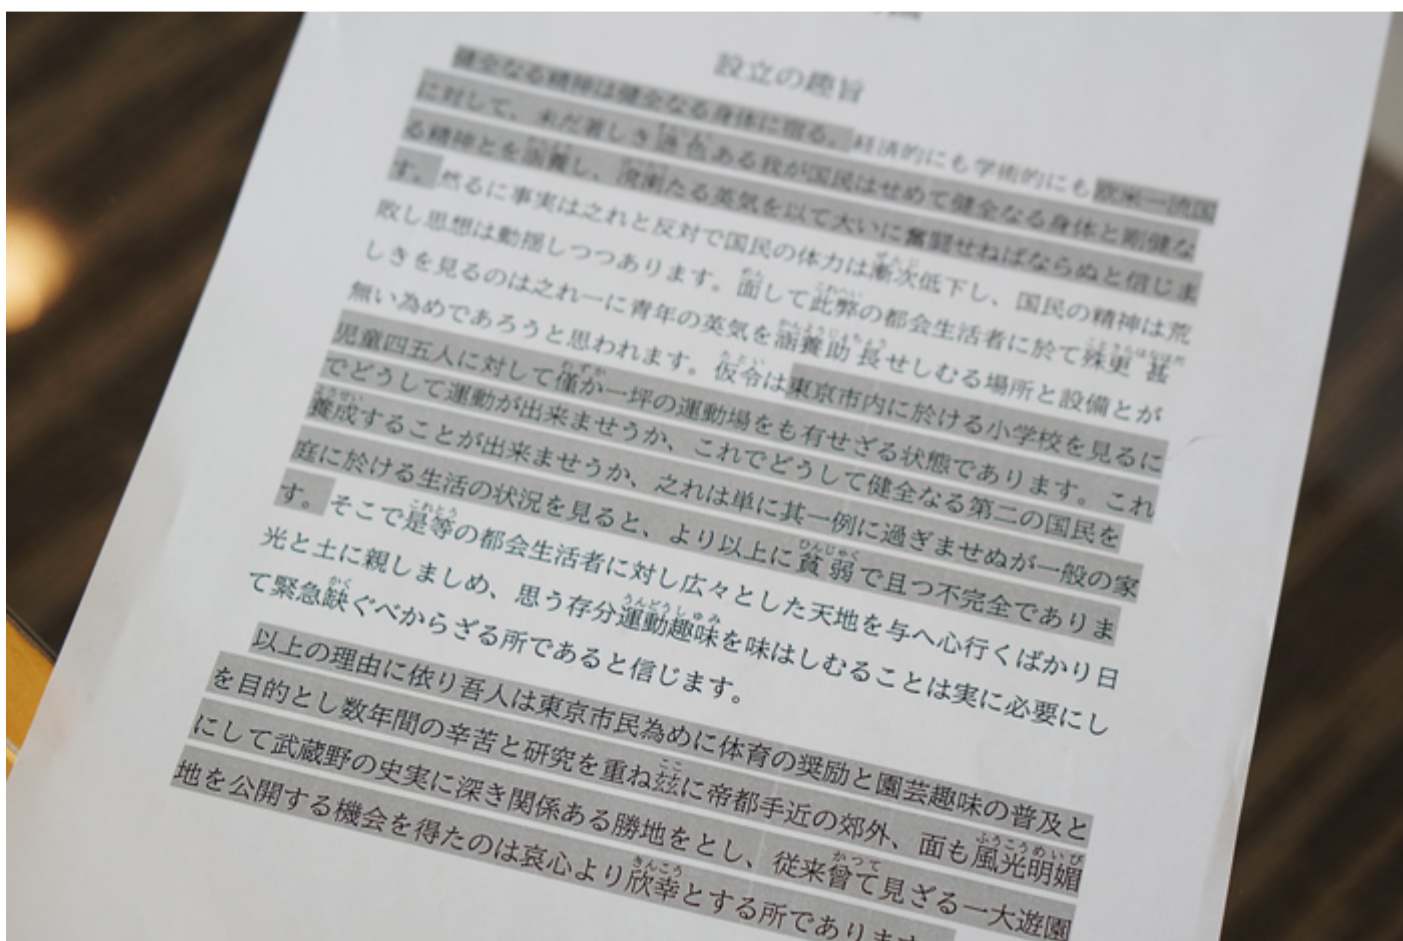 設立の趣旨
健全なる精神は健全なる身体に宿る。経済的にも学術的にも欧米一流国
に対して、未だ著しき遜色ある我が国民はせめて健全なる身体と剛健な
る精神とを涵養し、溌溂たる英気を以て大いに奮闘せねばならぬと信じま
す。然るに事実は之れと反対で国民の体力は漸次低下し、国民の精神は荒
敗し思想は動揺しつつあります。面して此弊の都会生活者に於て殊更甚
しきを見るのは之れ一に青年の英気を涵養助長せしむる場所と設備とが
無い為めであろうと思われます。仮令は東京市内に於ける小学校を見るに
児童四五人に対して僅か一坪の運動場をも有せざる状態であります。これ
でどうして運動が出来ませうか、これでどうして健全なる第二の国民を
養成することが出来ませうか、之れは単に其一例に過ぎませぬが一般の家
庭に於ける生活の状況を見ると、より以上に貧弱で且つ不完全でありま
す。そこで是等の都会生活者に対し広々とした天地を与へ心行くばかり日
光と土に親しましめ、思う存分運動趣味を味はしむることは実に必要にし
て緊急缺ぐべからざる所であると信じます。
以上の理由に依り吾人は東京市民為めに体育の奨励と園芸趣味の普及と
を目的とし数年間の辛苦と研究を重ね玆に帝都手近の郊外、面も風光明媚
にして武蔵野の史実に深き関係ある勝地をとし、従来曾て見ざる一大遊園
地を公開する機会を得たのは哀心より欣幸とする所であります